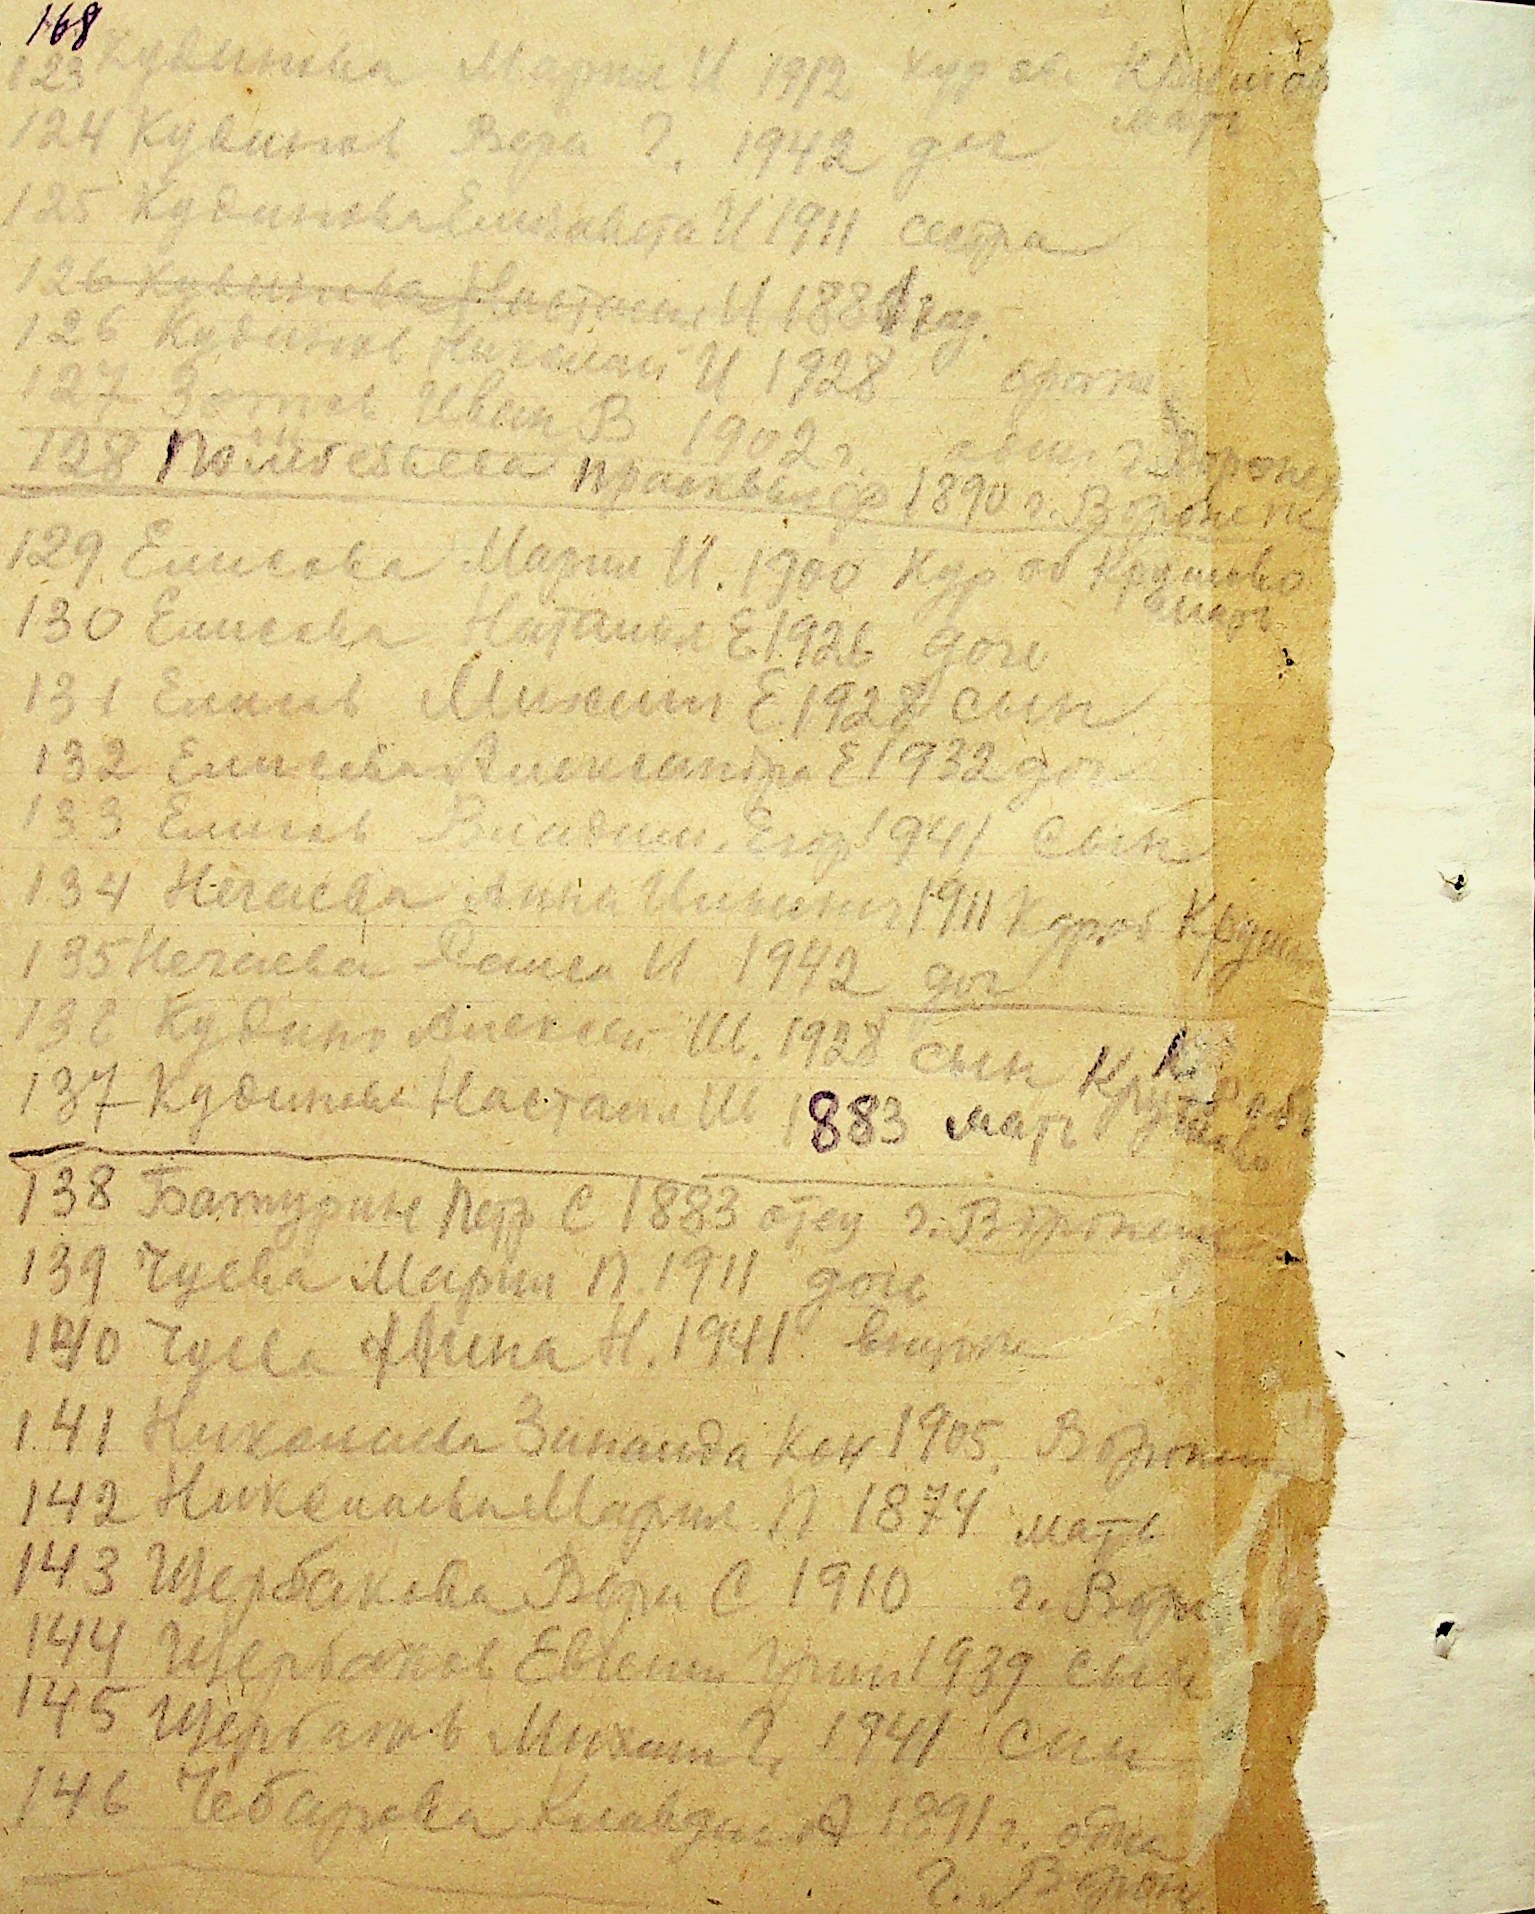 168
123 Кудинова Мария И 1912 Кур об.
мать
124 Кудинов Вера Г. 1942 доч
125 Кудинова Елизавета И 1911 сестра
126 Кудинова Настасия И 188
126 Кудинов Николай И 1928
127 Зотов Иван В 1902 г г. Воронеж
128 Прасковья ф 1890 г. Воронеж
129 Елисова Мария И. 1900 Кур об Крупново
мать
130 Елисова Наталья Е 1926 дочь
131 Елисов Михаил Е 1928 сын
132 Елисова Александра Е 1932 доч
133 Елисов Владим. Егор 1941 сын
134 Нечаева Анна 1911 Кур об
135 Нечаева И 1942 доч
136 Кудинов Алексей Ив. 1928 сын
137 Кудинова Настасия Ив 1883 мать
138 Батурин Петр С 1883 отец г. Воронеж
139 Чуева Мария П. 1911 дочь
140 Чуева Нина Н. 1941 внучка
141 Николаева Зинаида Кон 1905. Воронеж
142 Николаева Мария П 1874 мать
143 Щербакова Вера С 1910 г. Ворон
144 Щербаков Евгени 1939 сын
145 Щербаков Михаил Г. 1941 сын
146 Чебарова Клавдия А 1891 г. одна
г. Ворон